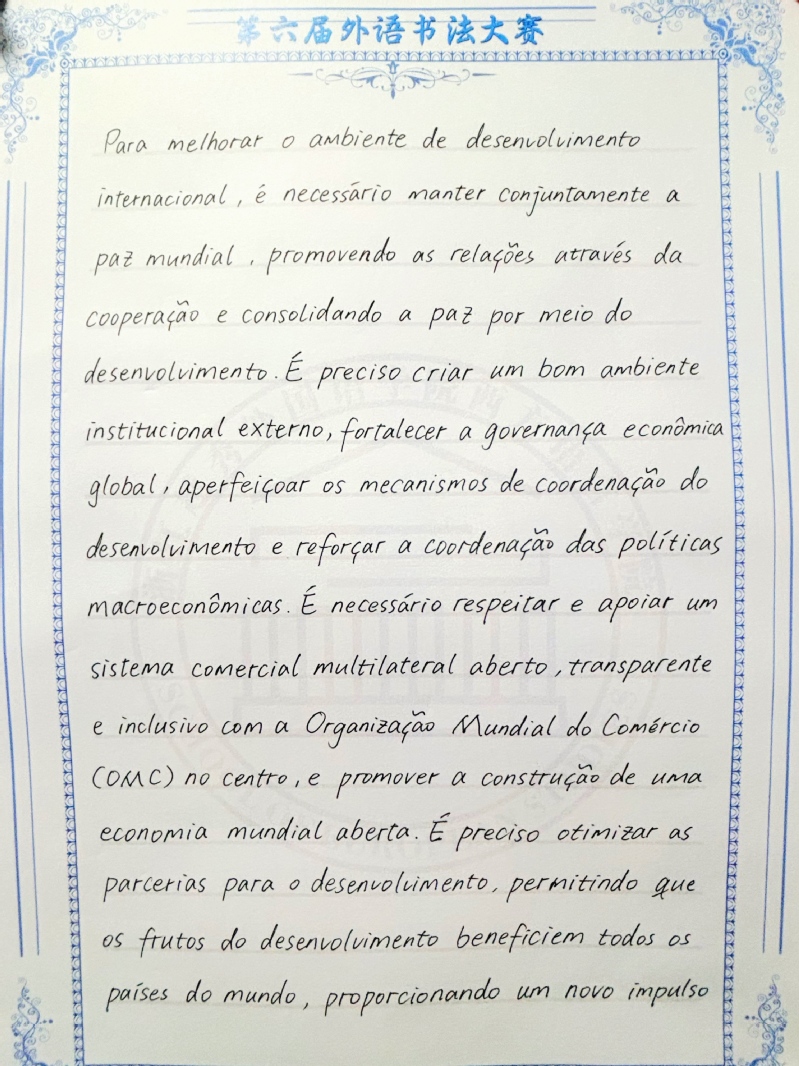 第六届外语书法大赛
Para melhorar o ambiente de desenvolvimento
internacional, é necessário manter conjuntamente a
paz mundial, promovendo as relações através da
cooperação e consolidando a paz por meio do
desenvolvimento. É preciso criar um bom ambiente
institucional externo, fortalecer a governança econômica
global, aperfeiçoar os mecanismos de coordenação do
desenvolvimento e reforçar a coordenação das políticas
macroeconômicas. É necessário respeitar e apoiar um
sistema comercial multilateral aberto, transparente
e inclusivo com a Organização Mundial do Comércio
(OMC) no centro, e promover a construção de uma
economia mundial aberta. É preciso otimizar as
parcerias para o desenvolvimento, permitindo que
os frutos do desenvolvimento beneficiem todos os
países do mundo, proporcionando um novo impulso